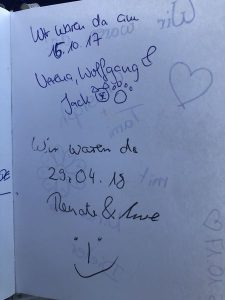 Wir waren da am
15.10.17
Wolfgang &
Jack
Wir waren da
29.04.18
Renate & Uwe